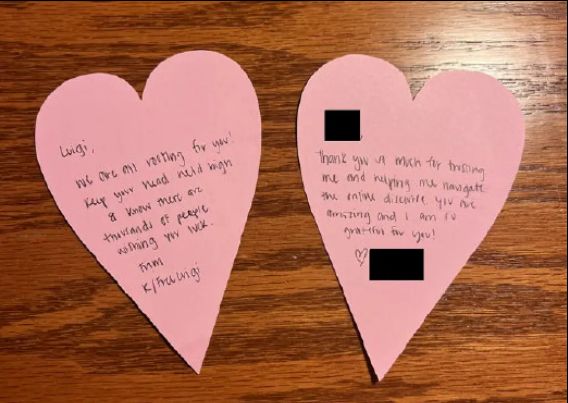 Luigi,
We are all rooting for you!
Keep your head held high
& know there are
thousands of people
wishing you luck.
From
K/FreeLuigi
Thank you so much for trusting
me and helping me navigate
the online discourse. You are
amazing and I am so
grateful for you!